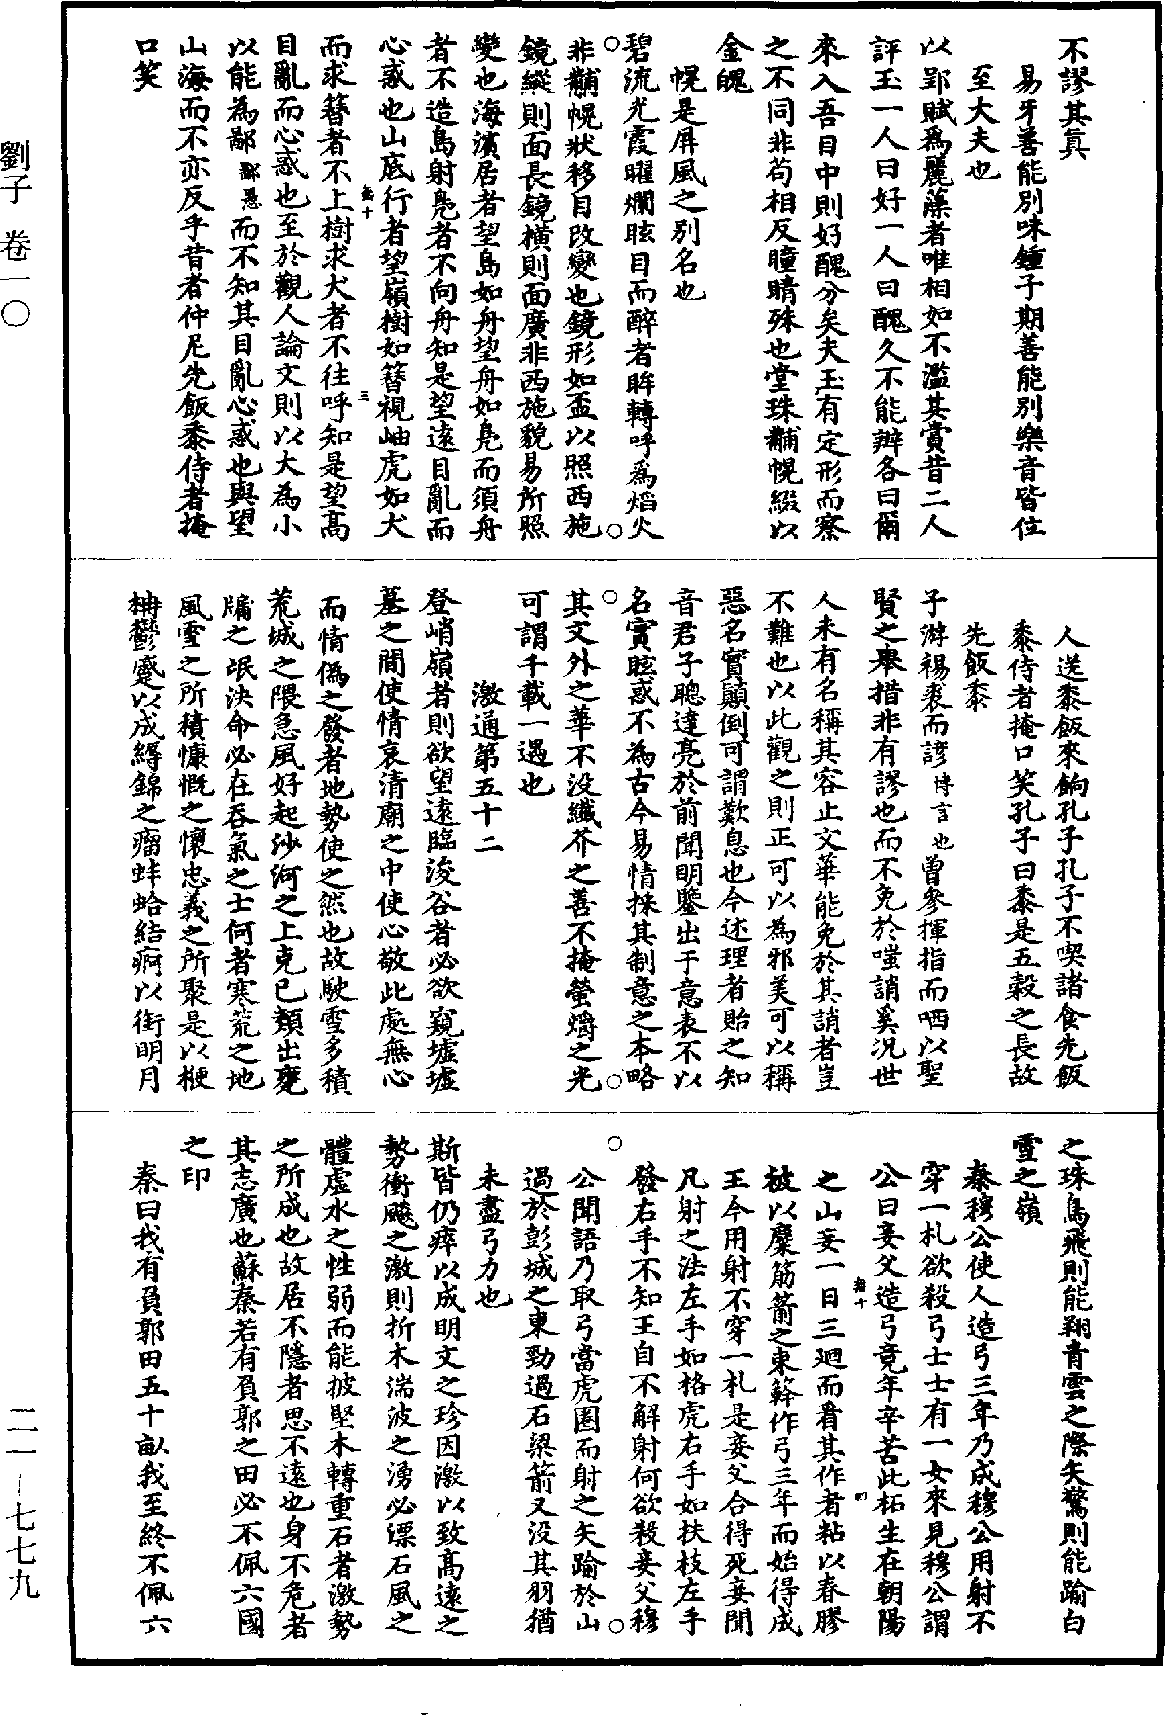 不謬其真
易牙善能別味鍾子期善能別樂音皆位
至大夫也
以郢賦為麗藻者唯相如不濫其賞昔二人
評玉一人曰好一人曰醜久不能辨各曰爾
來入吾目中則好醜分矣夫玉有定形而察
之不同非苟相反瞳睛殊也堂珠黼幌綴以
金魄
幌是屏風之別名也
碧流光霞曜爛眩目而醉者眸轉呼為焰火
非黼幌狀移目改變也鏡形如盃以照西施
鏡縱則面長鏡橫則面廣非西施貌易所照
變也海濱居者望島如舟望舟如鳧而須舟
者不造島射鳧者不向舟知是望遠目亂而
心惑也山底行者望嶺樹如簪視岫虎如犬
而求簪者不上樹求犬者不往呼知是望高
目亂而心惑也至於觀人論文則以大為小
以能為鄙鄙愚而不知其目亂心惑也與望
山海而不亦反乎昔者仲尼先飯黍侍者掩
口笑
人送黍飯來餉孔子孔子不喫諸食先飯
黍侍者掩口笑孔子曰黍是五穀之長故
先飯黍
子游裼裘而諺慱言也曾參揮指而哂以聖
賢之舉措非有謬也而不免於嗤誚奚況世
人未有名稱其容止文華能免於其誚者豈
不難也以此觀之則正可以為邪美可以稱
惡名實顛倒可謂歎息也今述理者貽之知
音君子聰達亮於前聞明鑒出于意表不以
名實眩惑不為古今易情採其制意之本略
其文外之華不没纖芥之善不掩螢爝之光
可謂千載一遇也
激通第五十二
登峭嶺者則欲望遠臨浚谷者必欲窺墟墟
墓之間使情哀清廟之中使心敬此處無心
而情偽之發者地勢使之然也故駛雪多積
荒城之隈急風好起沙河之上克己類出甕
牖之氓決命必在吞氣之士何者寒荒之地
風雪之所積慷慨之懷忠義之所聚是以楩
柟鬱蹙以成縟錦之瘤蚌蛤結痾以銜明月
之珠鳥飛則能翔青雲之際矢驚則能踰白
雪之嶺
秦穆公使人造弓三年乃成穆公用射不
穿一札欲殺弓士士有一女來見穆公謂
公曰妾父造弓竟年辛苦此柘生在朝陽
之山妾一日三廻而看其作者粘以春膠
被以麋筋箭之東簳作弓三年而始得成
王今用射不穿一札是妾父合得死妾聞
凡射之法左手如格虎右手如扶枝左手
發右手不知王自不解射何欲殺妾父穆
公聞語乃取弓當虎圈而射之矢踰於山
過於彭城之東勁過石梁箭又没其羽猶
未盡弓力也
斯皆仍瘁以成明文之珍因激以致高遠之
勢衝飈之激則折木湍波之湧必漂石風之
體虛水之性弱而能披堅木轉重石者激勢
之所成也故居不隱者思不遠也身不危者
其志廣也蘇秦若有負郭之田必不佩六國
之印
秦曰我有負郭田五十畝我至終不佩六
劉子 卷一〇
二一—七七九